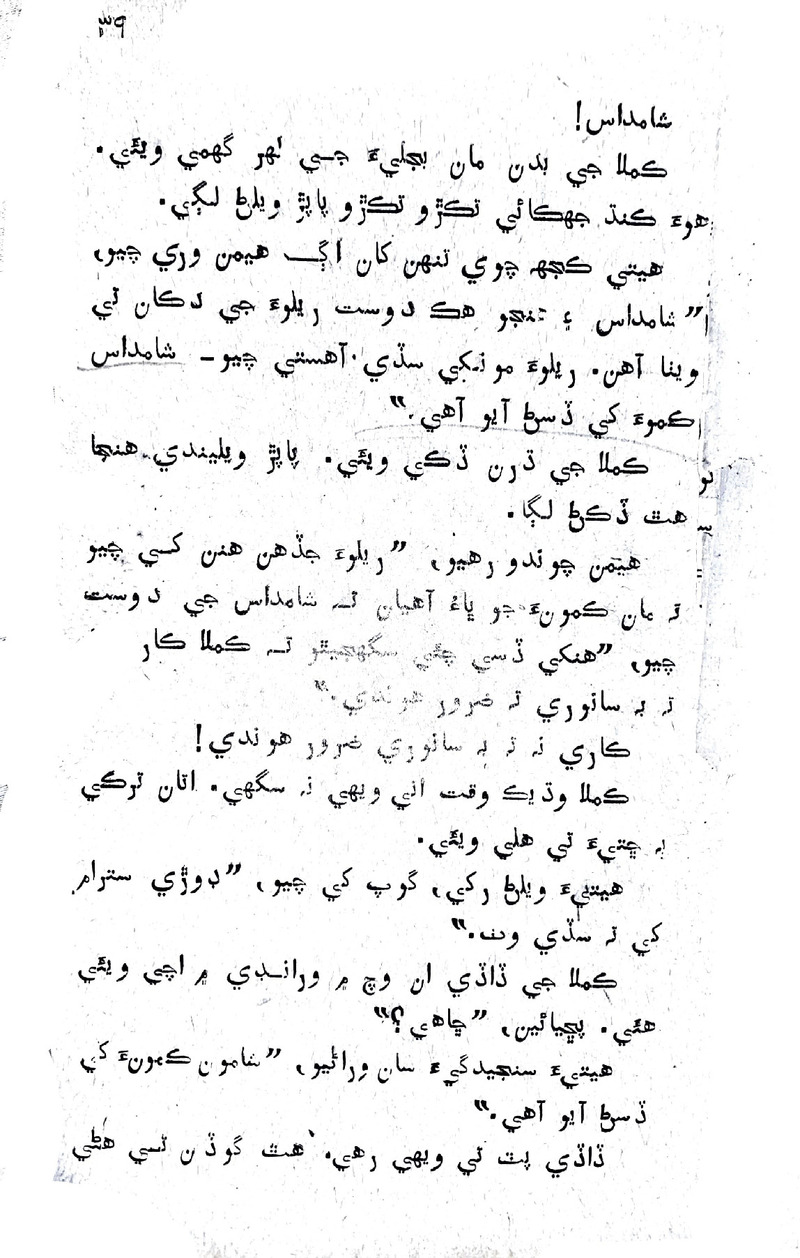 ٣٩
شامداس!
ڪملا جي بدن مان بجليءَ جي لهر گهمي ويئي.
هوءَ ڪنڌ جهڪائي تڪڙو تڪڙو پاپڙ ويلڻ لڳي.
هيتي ڪجهه چوي تنهن کان اڳ هيمن وري چيو،
”شامداس ۽ هڪ دوست ريلوءَ جي دڪان تي
ويٺا آهن. ريلوءَ مونکي سڏي آهستي چيو – شامداس
ڪموءَ کي ڏسڻ آيو آهي.“
ڪملا جي ڌرن ڏڪي ويئي. پاپڙ ويليندي هنجا
هٿ ڏڪڻ لڳا.
هيمن چوندو رهيو، ”ريلوءَ جڏهن هنن کسي چيو
ته مان ڪمونءَ جو ڀاءُ آهيان ته شامداس جي دوست
چيو، ”هنکي ڏسي چئي سگهجيٿو ته ڪملا ڪار
نه به سانوري ته ضرور هوندي.“
ڪاري نه ته به سانوري ضرور هوندي!
ڪملا وڌيڪ وقت اتي ويهي نه سگهي. اتان ترڪي
به ڇتيءَ تي هلي ويئي.
هيتيءَ ويلڻ رکي، گوپ کي چيو، ”ڊوڙي سترام
کي ته سڏي وٺ.“
ڪملا جي ڏاڏي ان وچ ۾ ورانڊي ۾ اچي ويئي
هئي. پڇيائين، ”ڇاهي؟“
هيتيءَ سنجيدگيءَ سان وراڻيو، ”شامون ڪمونءَ کي
ڏسڻ آيو آهي.“
ڏاڏي پٽ تي ويهي رهي. هٿ گوڏن تسي هڻي